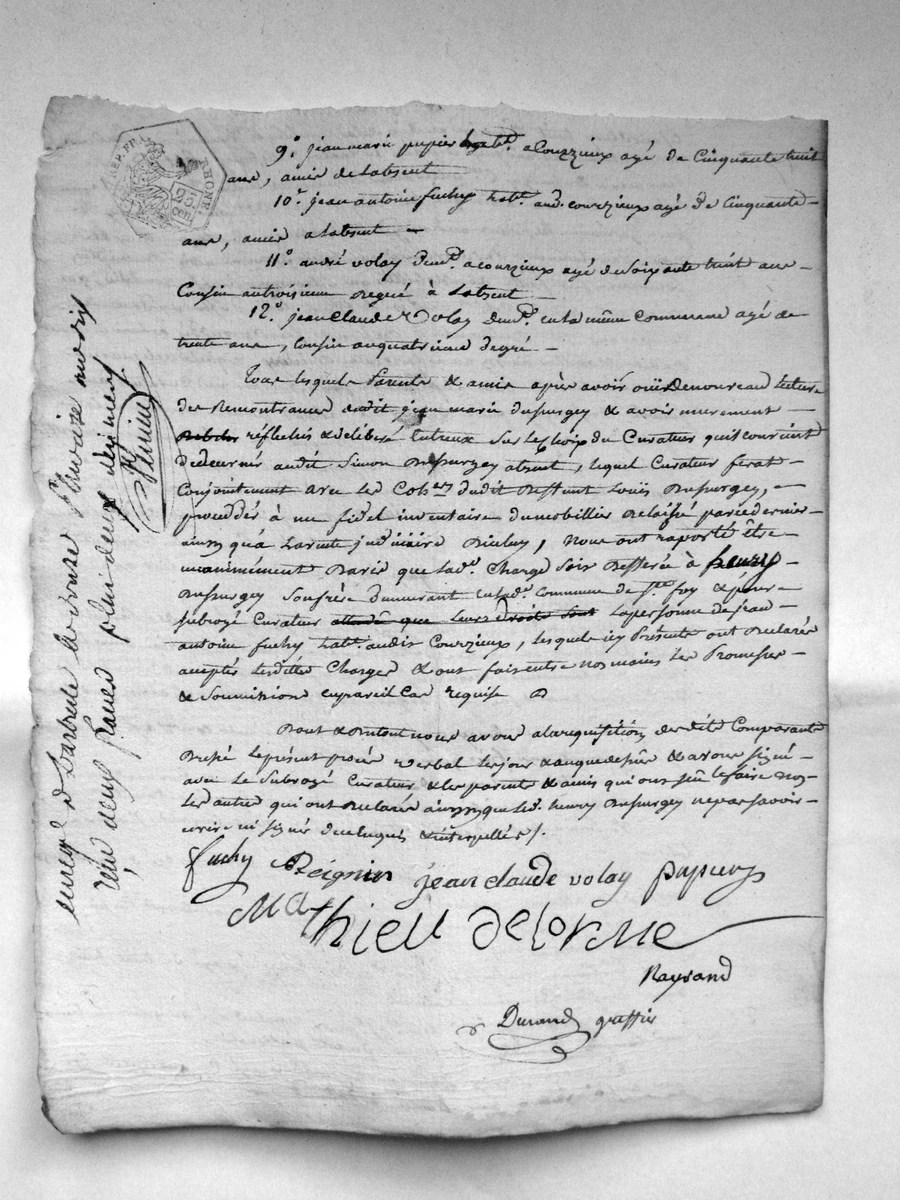 REP. FRA. RHONE.
25 cen
9.° jean marie pupier habt. a Courzieux agé de cinquante huit
ans, amis de Labsent
10.° jean antoine fuchy habt. aud. courzieux agé de Cinquante
ans, amis a Labsent
11.° andré volay demt. a courzieux agé de Soixante huit ans
Cousin au troisieme degré à Labsent
12.° jean Claude Volay demt. en la même Commune agé de
trente ans, Cousin au quatrieme degré
Tous lesquels Parents & amis après avoir oüi de nouveau Lecture
des Remontrances dudit jean marie Dupurgey & avoir murement
réflechis & deliberé Entreux Sur Le Choix du Curateur quil convient
de decerner audit Simon Dupurgey absent, lequel Curateur ferat
Conjointement avec les Cohers. dudit Deffunt Loüis Dupurgey,
proceder à un fidel inventaire du mobillier Delaissé par ce dernier
ainsy qu'a La vente judiciaire Diceluy, Nous ont raporté être
unanimement Davis que Lade. Charge Soit Defferée à henry
Dupurgey Son frère demeurant en Lade. Commune de Ste. foy & pour
Subrogé Curateur attendu que Leurs droits Sont La personne de jean
antoine fuchy habt. audit Courzieux, Lesquels icy Présents ont Declarés
accepter Lesdittes Charges & ont fais entre nos mains Les Promesses
& Soumissions en pareil Cas requise
Dont & du tout nous avons a la requisition desdits Comparants
Dressé Le présent procès verbal Les jour & an que dessus & avons Signé
avec Le Subrogé Curateur & Les parents & amis qui ont Sçu Le faire non
Les autres qui ont Declarés ainsy que Led. henry Dupurgey ne pas Savoir
ecrire ni Signer de ce Enquis & interpellés /.
fuchy Peignin jean claude volay pupier
Mathieu delorme
Raysand
Durand greffier
enregé. a Larbresle le onze
reçu deux francs plus deux décimes